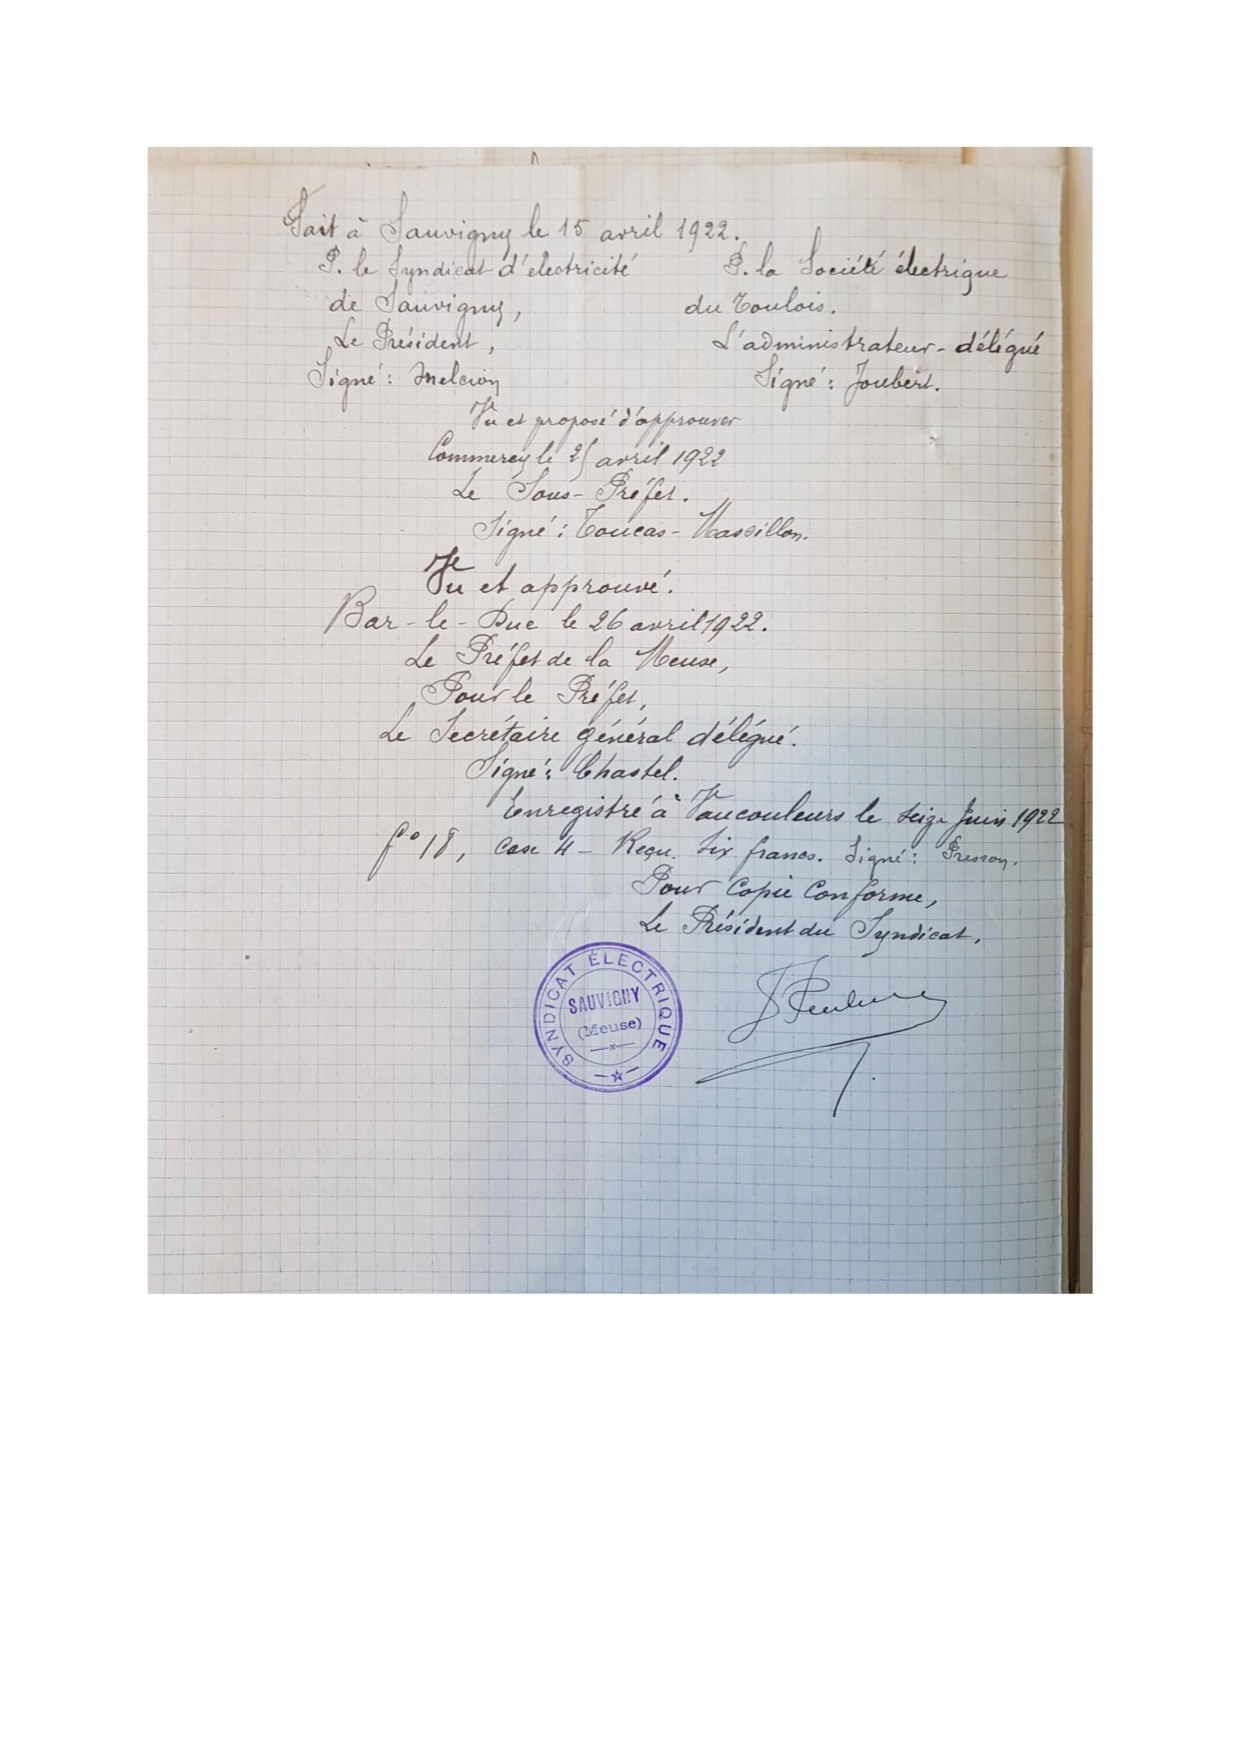 Fait à Sauvigny le 15 avril 1922.
P. le Syndicat d'électricité
de Sauvigny,
Le Président,
Signé: Melcion
P. la Société électrique
du Toulois.
L'administrateur-délégué
Signé: Joubert.
Vu et proposé d'approuver
Commercy le 25 avril 1922
Le Sous-Préfet.
Signé: Toucas-Massillon.
Vu et approuvé.
Bar-le-Duc le 26 avril 1922.
Le Préfet de la Meuse,
Pour le Préfet,
Le Secrétaire général délégué.
Signé: Chastel.
Enregistré à Vaucouleurs le seize Juin 1922
f° 18, Case 4 - Reçu. Six francs. Signé:
Pour Copie Conforme,
Le Président du Syndicat.
SYNDICAT ÉLECTRIQUE
SAUVIGNY
(Meuse)